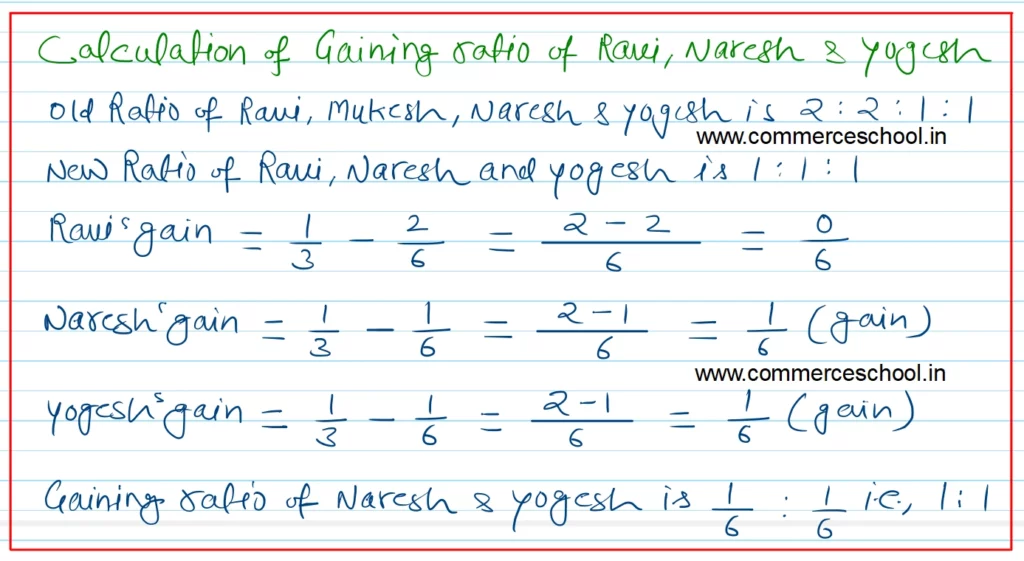 Calculation of Gaining ratio of Ravi, Naresh & Yogesh
Old Ratio of Ravi, Mukesh, Naresh & Yogesh is 2 : 2 : 1 : 1
www.commerceschool.in
New Ratio of Ravi, Naresh and Yogesh is 1 : 1 : 1
Ravi's gain = 1/3 − 2/6 = 2 − 2/6 = 0/6
Naresh's gain = 1/3 − 1/6 = 2 − 1/6 = 1/6 (gain)
www.commerceschool.in
Yogesh's gain = 1/3 − 1/6 = 2 − 1/6 = 1/6 (gain)
Gaining ratio of Naresh & Yogesh is 1/6 : 1/6 i.e., 1 : 1